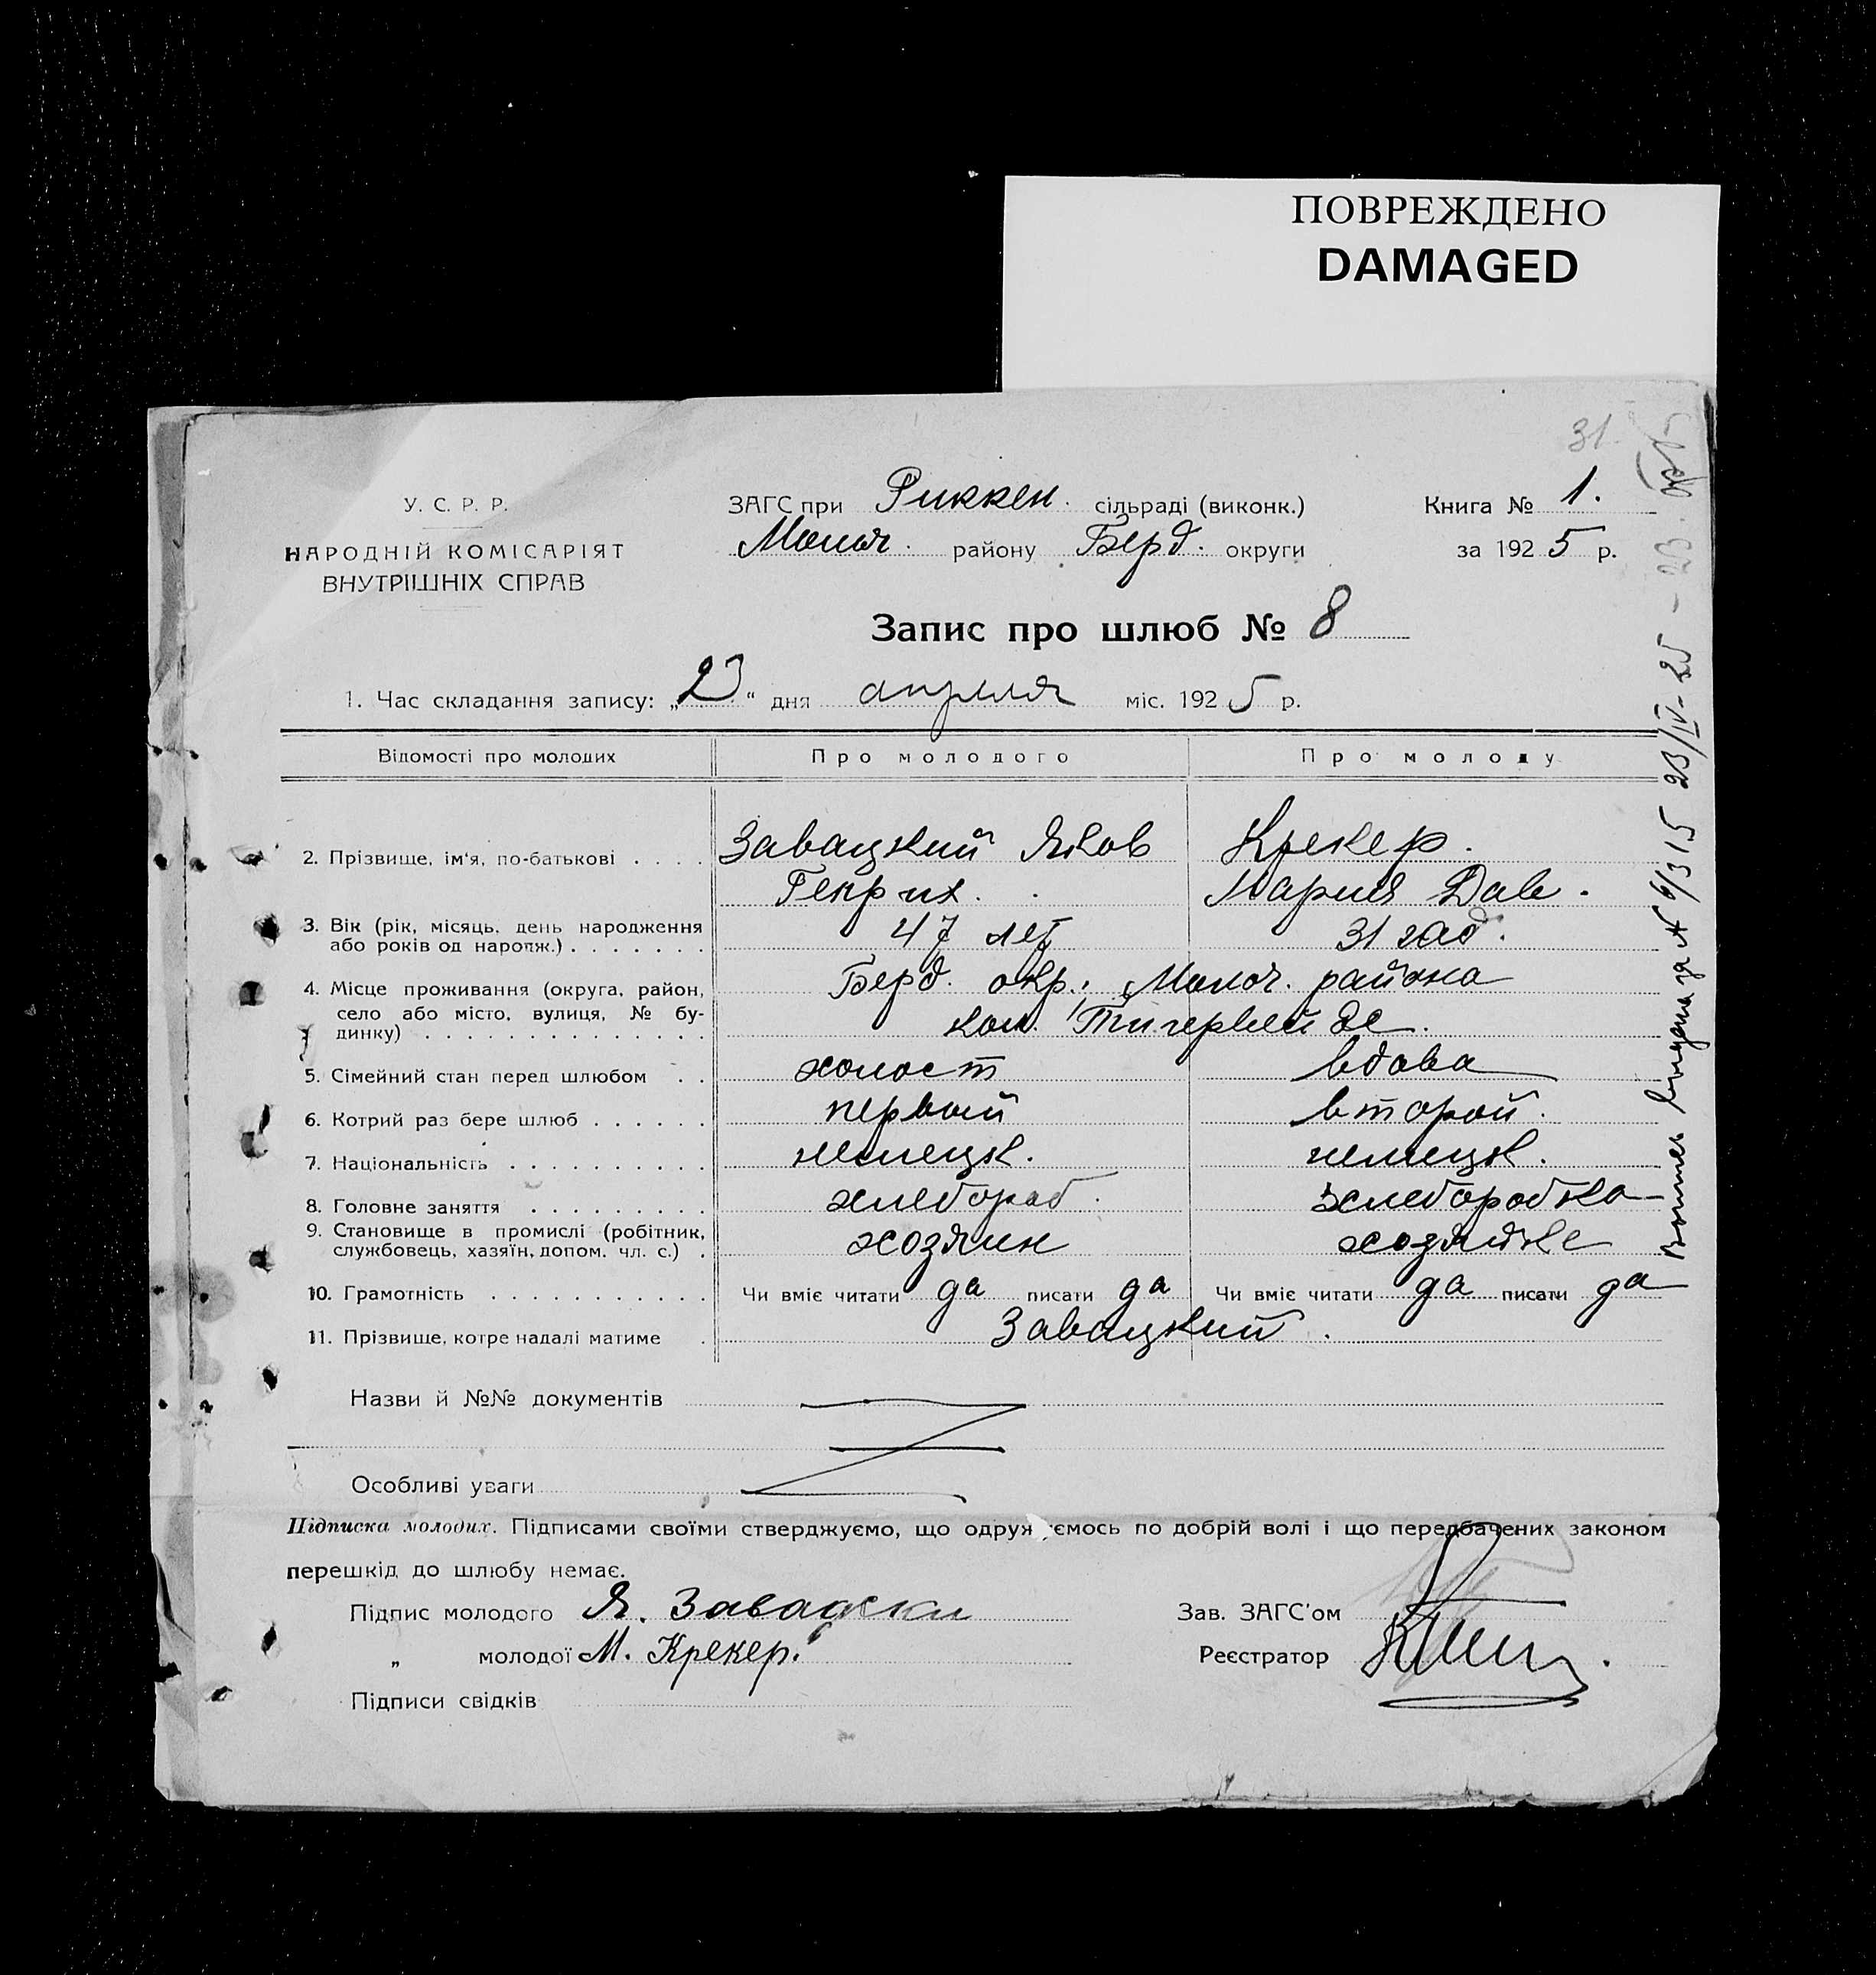 ПОВРЕЖДЕНО
DAMAGED
31
У. С. Р. Р.
НАРОДНІЙ КОМІСАРІЯТ
ВНУТРІШНІХ СПРАВ
ЗАГС при Риккен. сільраді (виконк.)
Молоч. району Берд. округи
Книга № 1.
за 1925 р.
Запис про шлюб № 8
1. Час складання запису: „23“ дня апреля міс. 1925 р.
Відомості про молодих Про молодого Про молоду
2. Прізвище, ім'я, по-батькові . . . . Завацкий Яков Крекер.
Генрих. Мария Дав.
3. Вік (рік, місяць, день народження 47 лет 31 год.
або років од народж.) . . . . . . .
4. Місце проживання (округа, район, Берд. окр., Молоч. района
село або місто, вулиця, № бу-
динку) . . . . . . . . . . . . . . кол. Тигервейде.
5. Сімейний стан перед шлюбом . . холост вдова
6. Котрий раз бере шлюб . . . . . . первый второй.
7. Національність . . . . . . . . . . немецк. немецк.
8. Головне заняття . . . . . . . . . хлебороб. хлеборобка
9. Становище в промислі (робітник,
службовець, хазяїн, допом. чл. с.) . хозяин хозяйке
10. Грамотність . . . . . . . . . . . Чи вміє читати да писати да Чи вміє читати да писати да
11. Прізвище, котре надалі матиме . Завацкий.
Назви й №№ документів
Особливі уваги
Підписка молодих. Підписами своїми стверджуємо, що одруж ємось по добрій волі і що передбачених законом
перешкід до шлюбу немає.
Підпис молодого Я. Завадски
„ молодої М. Крекер.
Підписи свідків
Зав. ЗАГС'ом
Реєстратор
выдана за № 6/315 23/IV-25